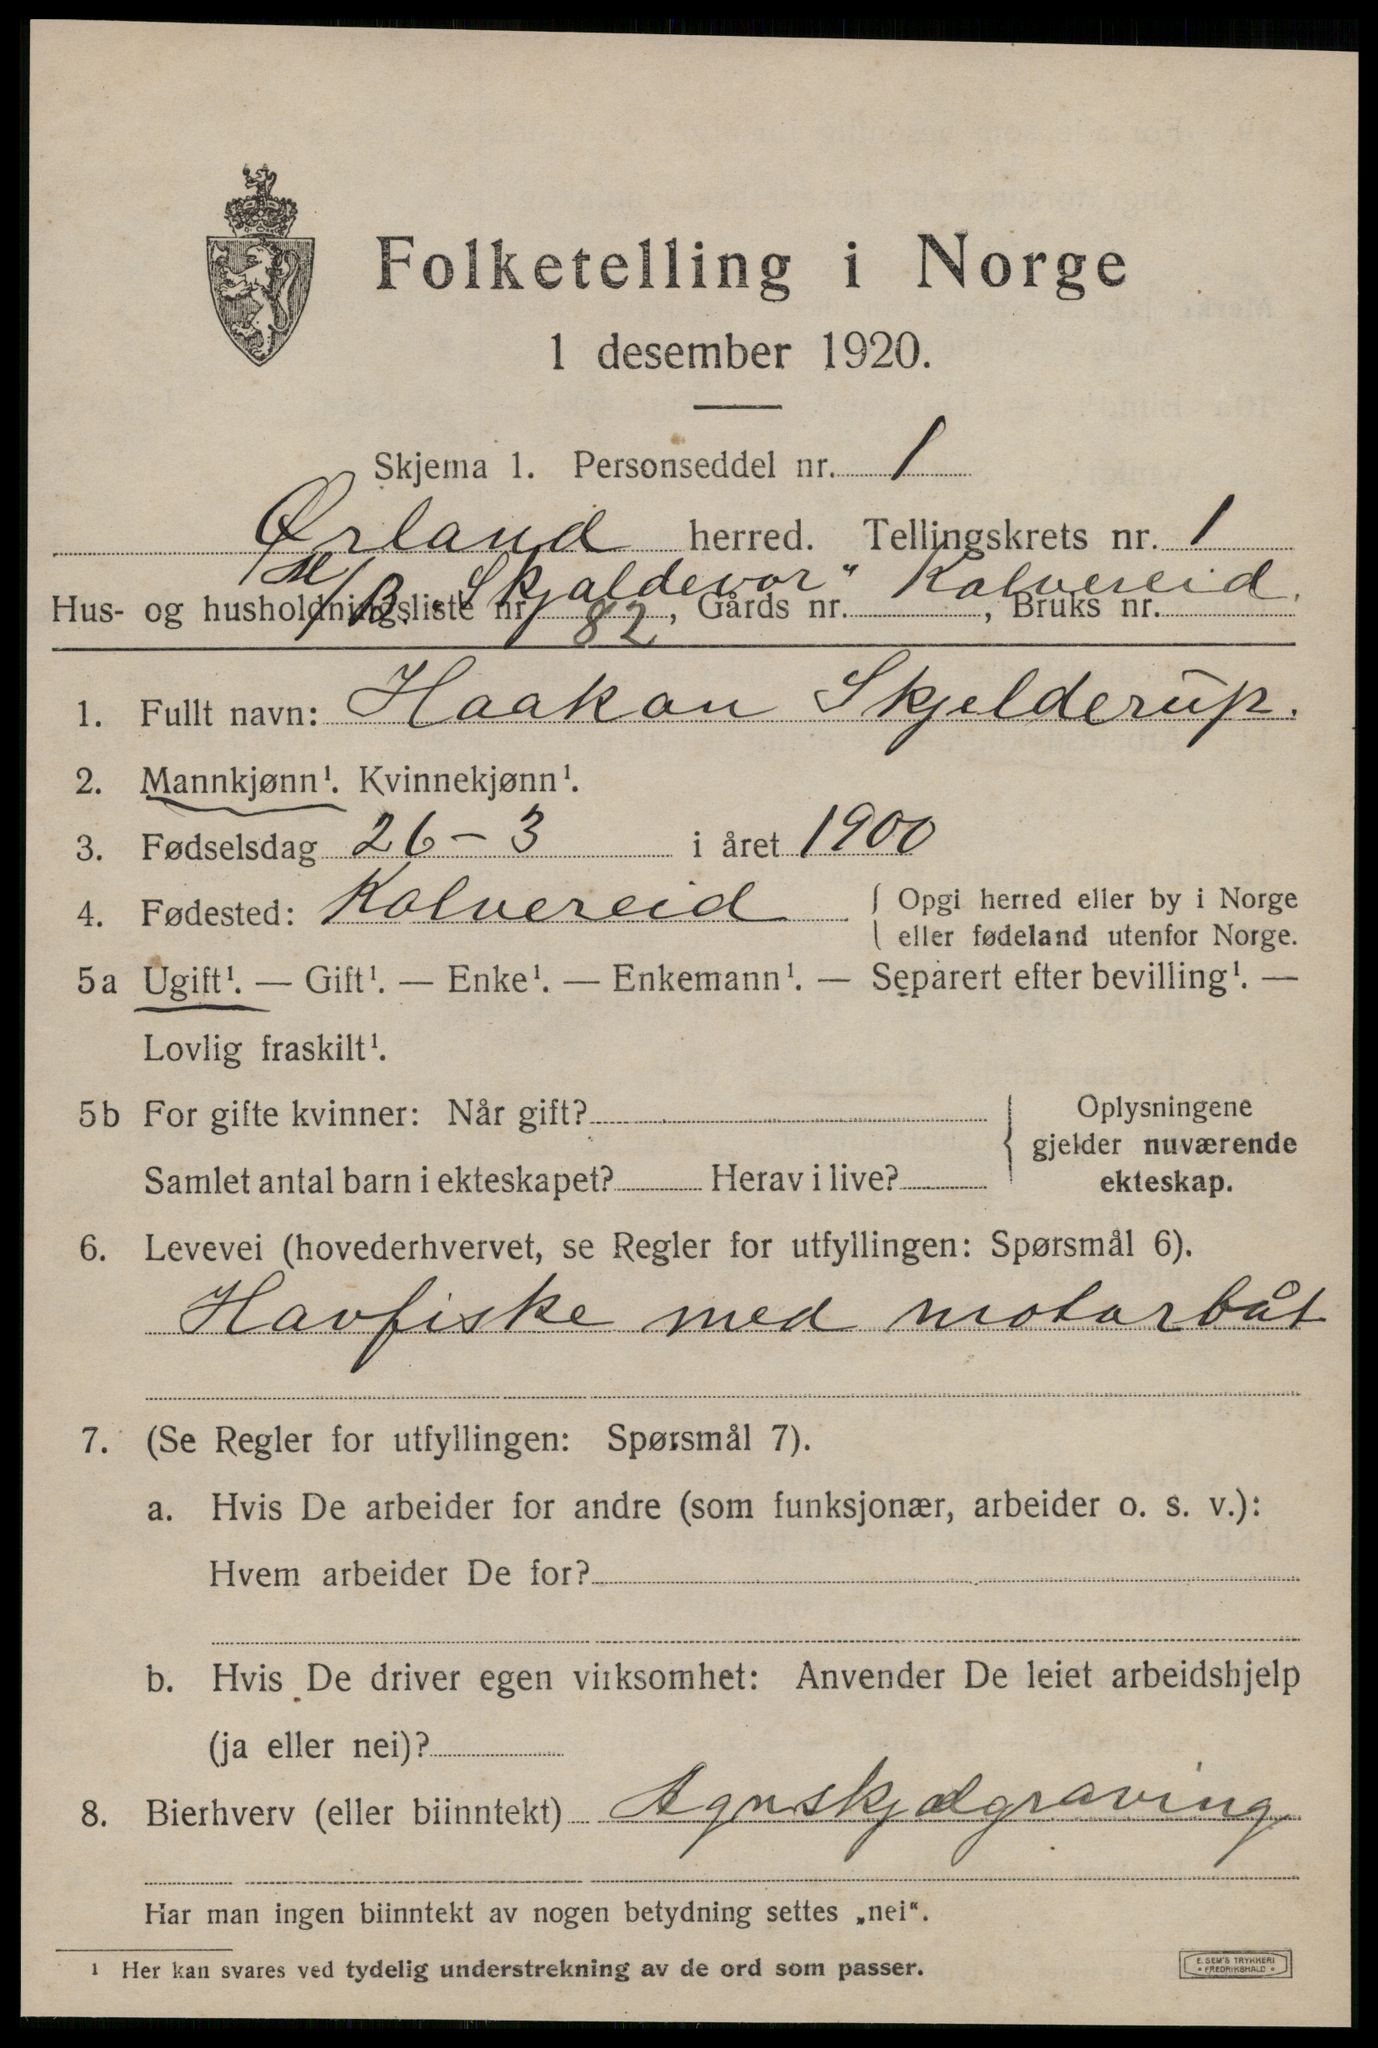 Folketelling i Norge
1 desember 1920.
Skjema 1. Personseddel nr. 1
Ørland herred. Tellingskrets nr. 1
M/B. "Skjaldevor" Kolvereid.
Hus- og husholdningsliste nr. 82, Gårds nr. , Bruks nr.
1. Fullt navn: Haakon Skjelderup.
2. Mannkjønn¹. Kvinnekjønn¹.
3. Fødselsdag 26-3 i året 1900
4. Fødested: Kolvereid { Opgi herred eller by i Norge
eller fødeland utenfor Norge.
5a Ugift¹. — Gift¹. — Enke¹. — Enkemann¹. — Separert efter bevilling¹. —
Lovlig fraskilt¹.
5b For gifte kvinner: Når gift?
Samlet antal barn i ekteskapet? Herav i live?
Oplysningene
gjelder nuværende
ekteskap.
6. Levevei (hovederhvervet, se Regler for utfyllingen: Spørsmål 6).
Havfiske med motorbåt
7. (Se Regler for utfyllingen: Spørsmål 7).
a. Hvis De arbeider for andre (som funksjonær, arbeider o. s. v.):
Hvem arbeider De for?
b. Hvis De driver egen virksomhet: Anvender De leiet arbeidshjelp
(ja eller nei)?
8. Bierhverv (eller biinntekt) Agnskjælgraving
Har man ingen biinntekt av nogen betydning settes „nei“.
¹ Her kan svares ved tydelig understrekning av de ord som passer.
E. SEM'S TRYKKERI
• FREDRIKSHALD •